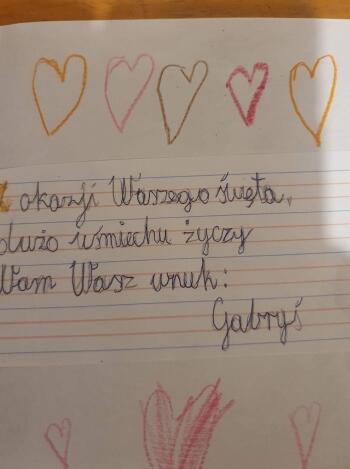 Z okazji Waszego święta,
dużo uśmiechu życzy
Wam Wasz wnuk:
Gabryś